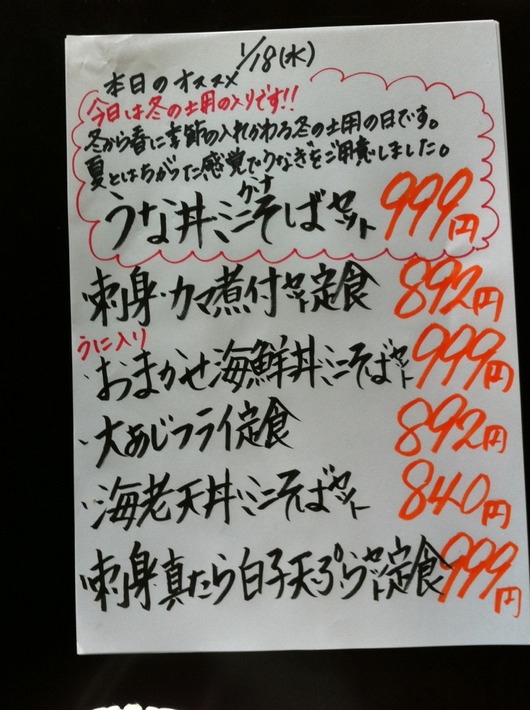 1/18(水)
本日のオススメ
今日は冬の土用の入りです!!
冬から春に季節の入れかわる冬の土用の日です。
夏とはちがった感覚でうなぎをご用意しました。
うな丼、ミニそばセット 999円
・刺身・カマ煮付セット定食 892円
うに入り
・おまかせ海鮮丼ミニそばセット 999円
・大あじフライ定食 892円
・海老天丼ミニそばセット 840円
・刺身真たら白子天ぷらセット定食 999円